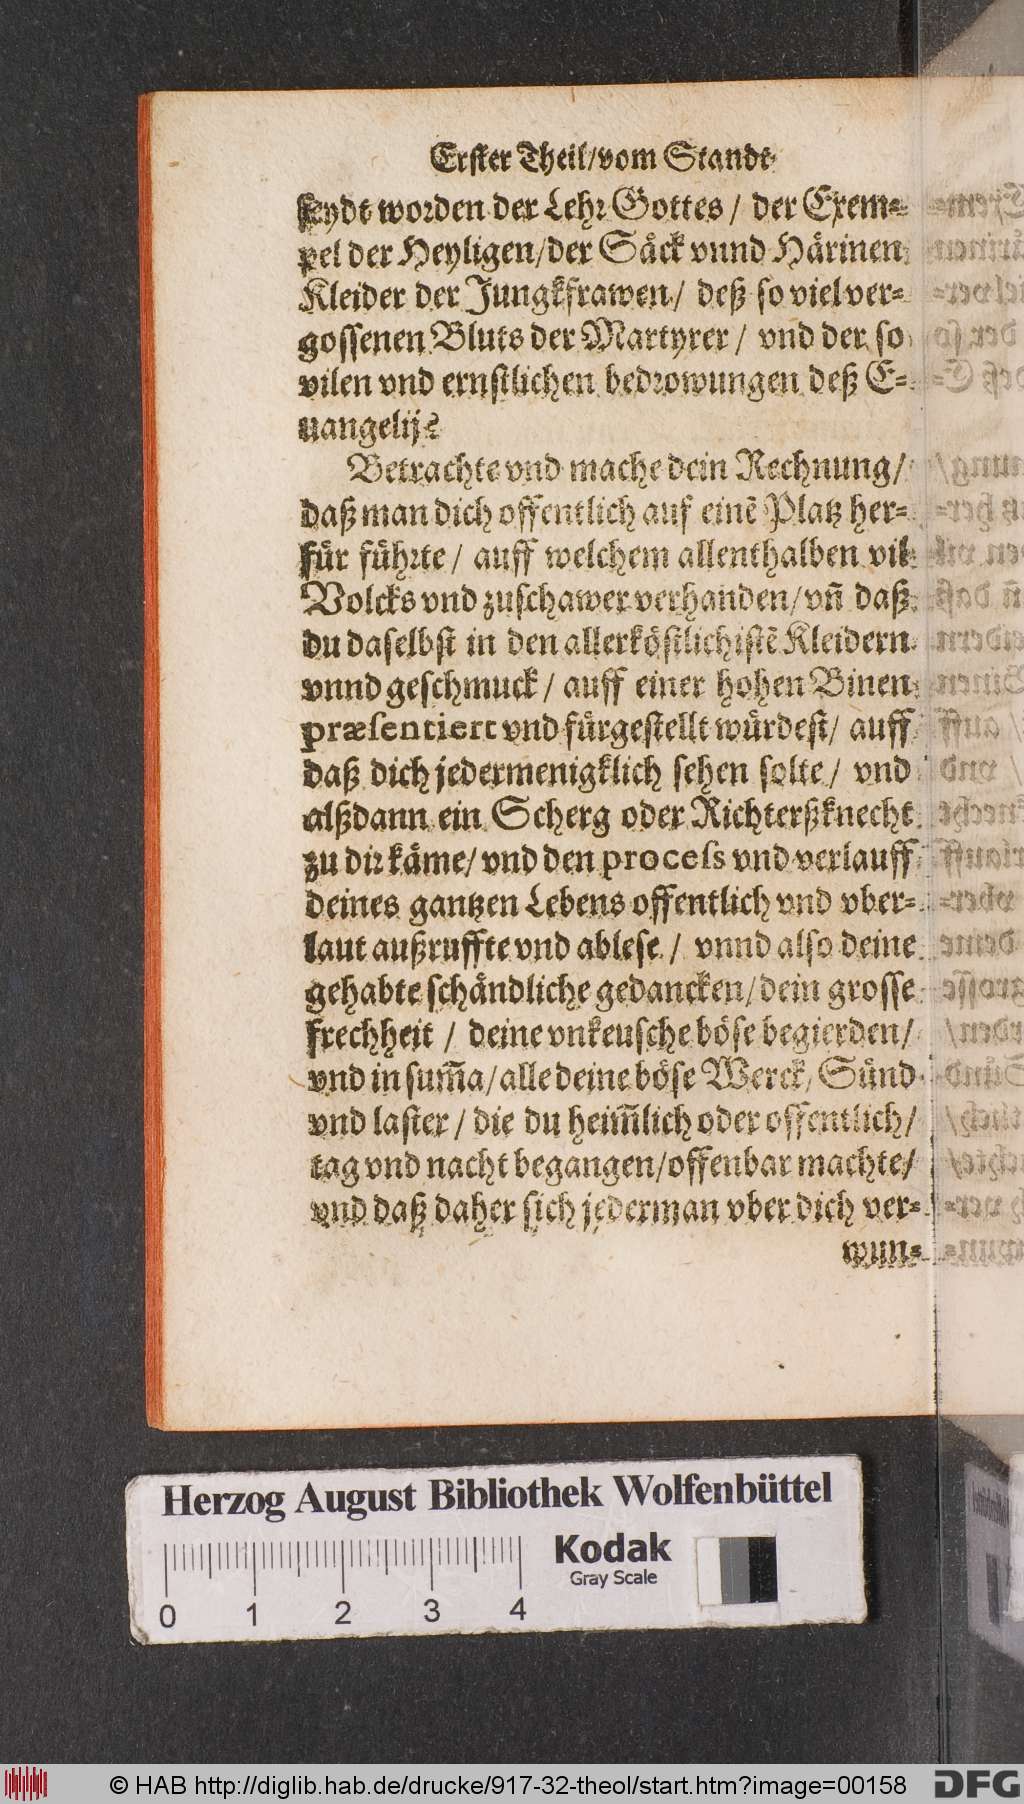 Erster Theil/vom Standt
seydt worden der Lehr Gottes / der Exem-
pel der Heyligen/der Säck vnnd Härinen
Kleider der Jungkfrawen / deß so viel ver-
gossenen Bluts der Martyrer / vnd der so
vilen vnd ernstlichen bedrowungen deß E-
uangelij?
Betrachte vnd mache dein Rechnung/
daß man dich offentlich auf einē Platz her-
für führte / auff welchem allenthalben vil
Volcks vnd zuschawer verhanden/vn̄ daß
du daselbst in den allerköstlichistē Kleidern
vnnd geschmuck / auff einer hohen Binen
præsentiert vnd fürgestellt würdest/ auff
daß dich jedermenigklich sehen solte / vnd
alßdann ein Scherg oder Richterßknecht
zu dir käme/ vnd den process vnd verlauff
deines gantzen Lebens offentlich vnd vber-
laut außruffte vnd ablese / vnnd also deine
gehabte schändliche gedancken/dein grosse
frechheit / deine vnkeusche böse begierden/
vnd in sum̄a/alle deine böse Werck/ Sünd
vnd laster / die du heim̄lich oder offentlich/
tag vnd nacht begangen/offenbar machte/
vnd daß daher sich jederman vber dich ver-
wun-
Herzog August Bibliothek Wolfenbüttel
Kodak
Gray Scale
0 1 2 3 4
© HAB http://diglib.hab.de/drucke/917-32-theol/start.htm?image=00158
DFG